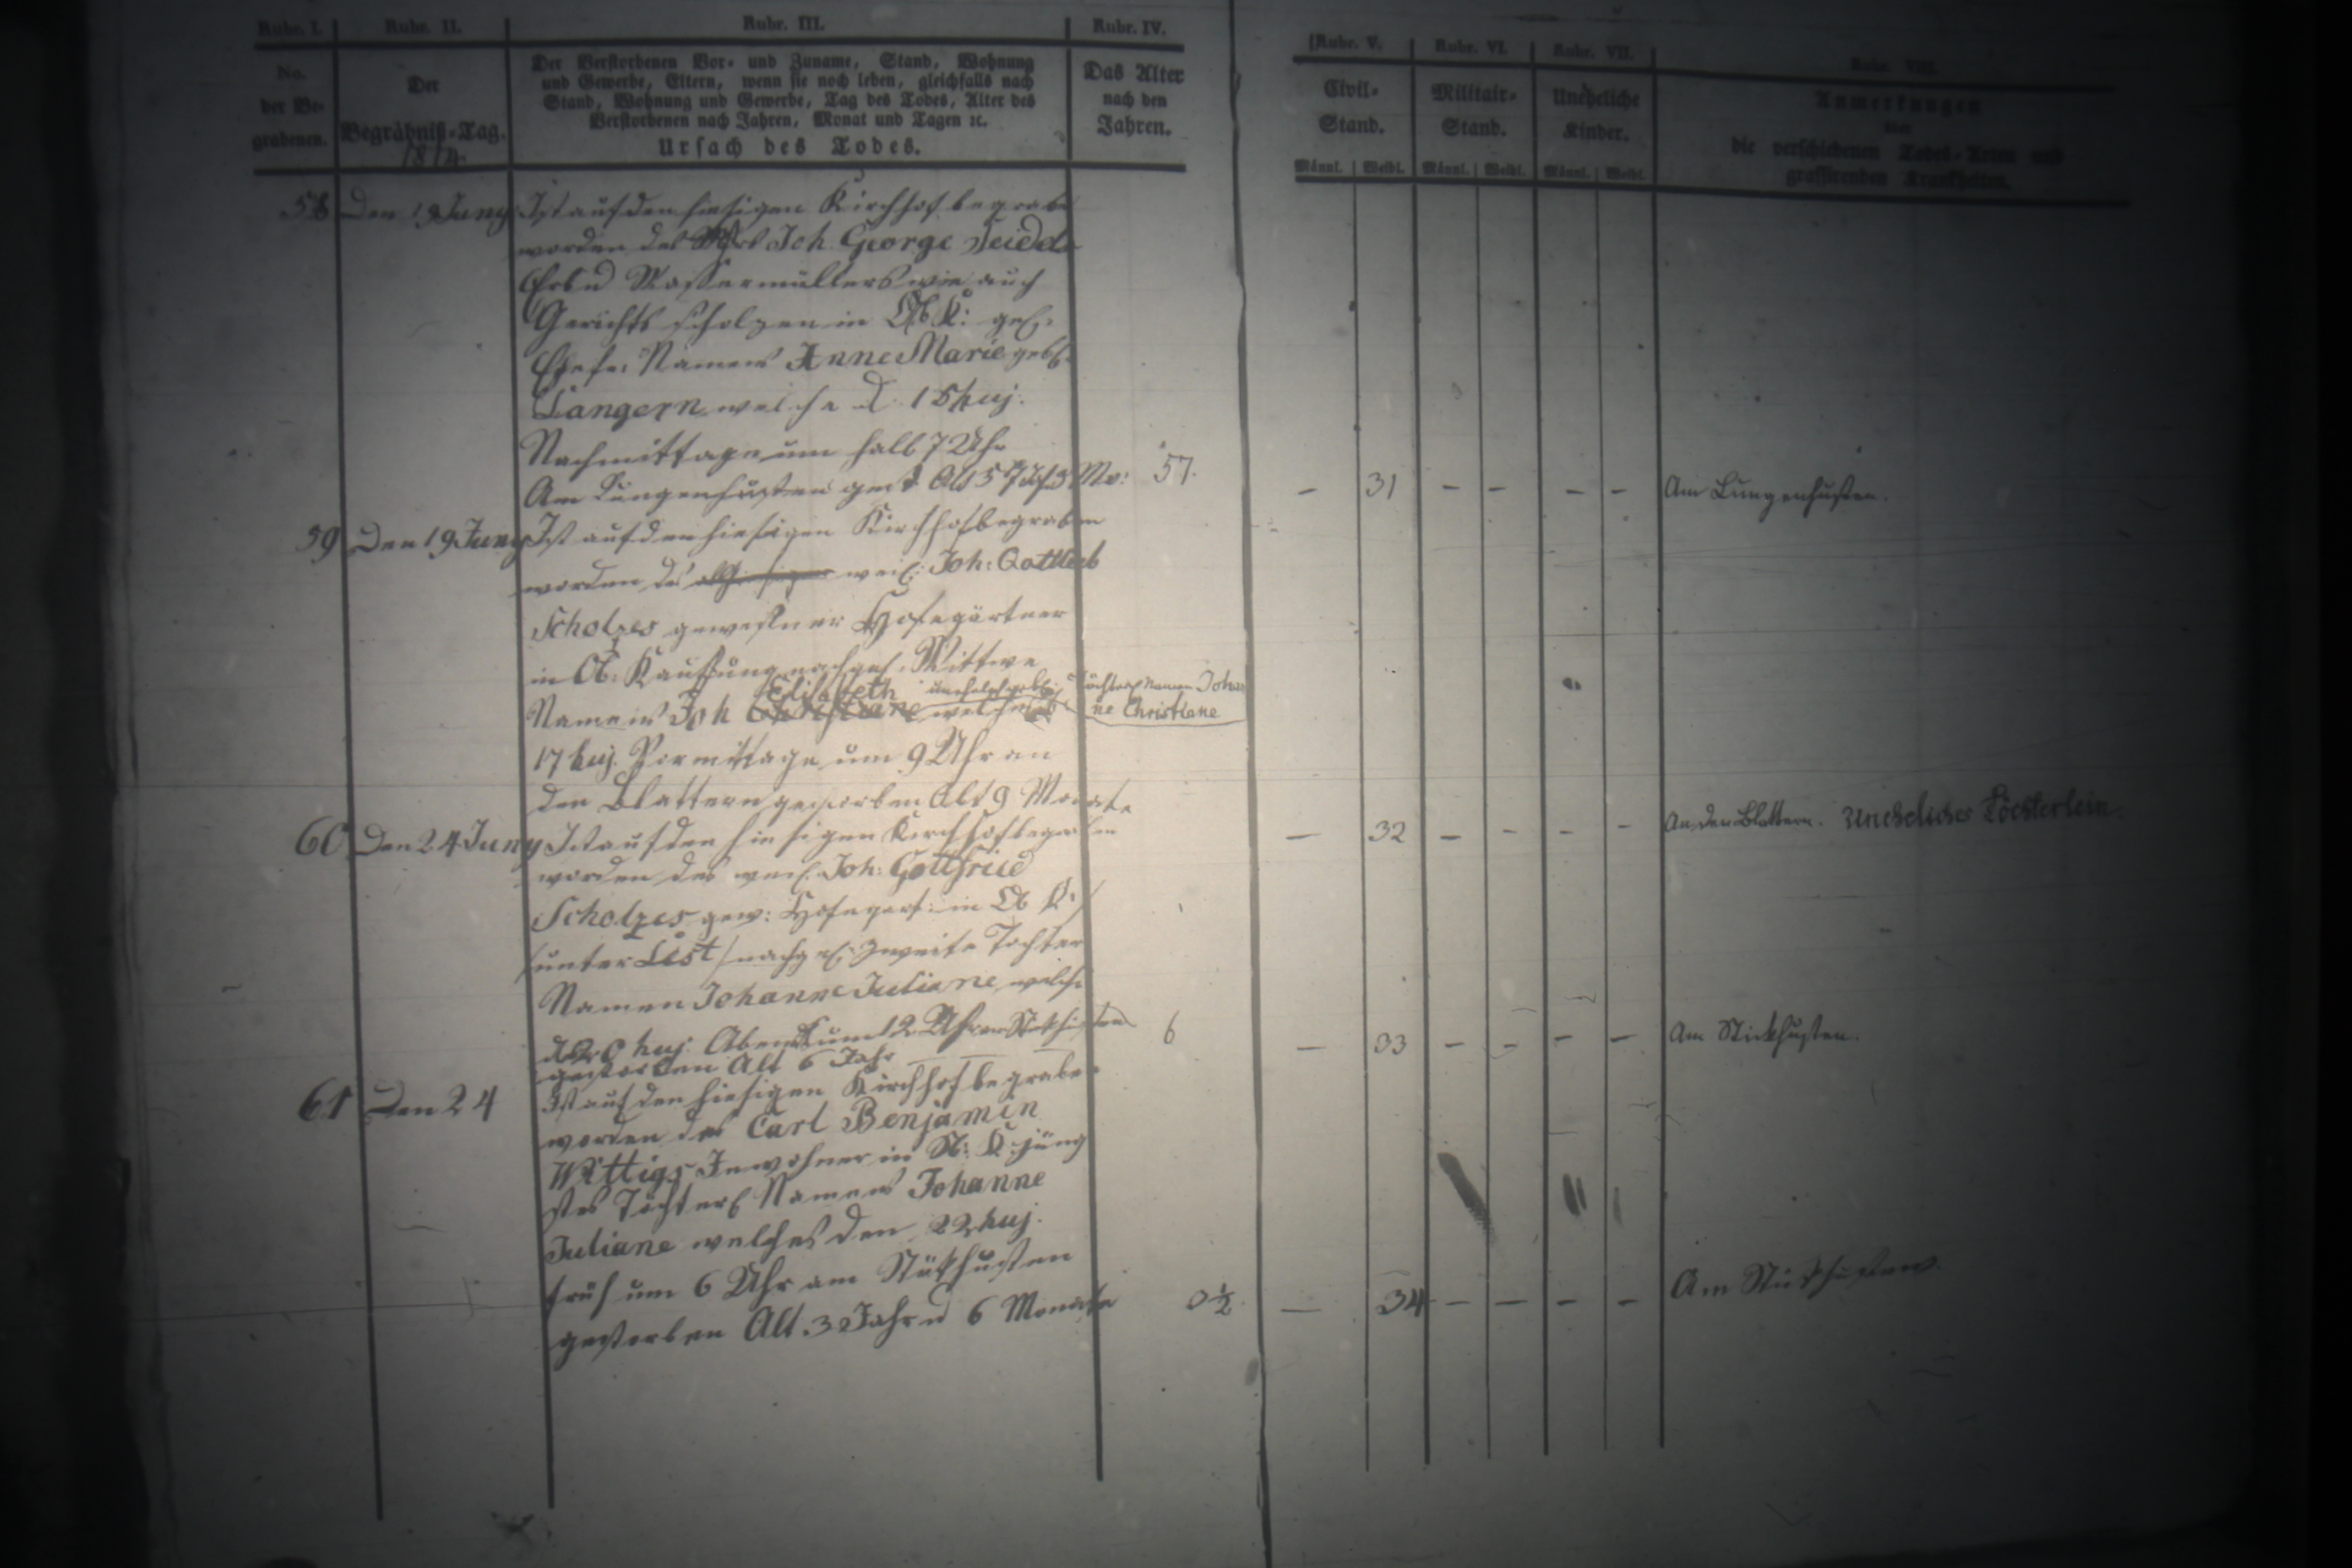 Rubr. I.
Rubr. II.
Rubr. III.
Rubr. IV.
Rubr. V.
Rubr. VI.
Rubr. VII.
Rubr. VIII.
No.
der Be-
grabenen.
Der
Begräbniß-Tag.
1814
Der Verstorbenen Vor- und Zuname, Stand, Wohnung
und Gewerbe, Eltern, wenn sie noch leben, gleichfalls nach
Stand, Wohnung und Gewerbe, Tag des Todes, Alter des
Verstorbenen nach Jahren, Monat und Tagen ꝛc.
Ursach des Todes.
Das Alter
nach den
Jahren.
Civil-
Stand.
Männl. Weibl.
Militair-
Stand.
Männl. Weibl.
Uneheliche
Kinder.
Männl. Weibl.
Anmerkungen
über
die verschiedenen Todes-Arten und
grassirenden Krankheiten.
58 Den 19 Juny Ist auf den hiesigen Kirchhof begraben
worden des Joh. George
Erb u Wassermüllers wie auch
Gerichts scholzen in Ob. K:
Namens Anne Marie geb.
Langern welche d. 15 huj.
Nachmittage um halb 7 Uhr
Am Lungenhusten gest. Alt 57 Jahr 3 Mo: 57. – 31 – – – – Am Lungenhusten.
59 Den 19 Juny Ist auf den hiesigen Kirchhof begraben
worden des weil: Joh: Gottlieb
Scholzes gewesener Hofegärtner
in Ob: Kauffung nachgel. Wittwe
Elisabeth unehelich geb. Töchterl Namens Johan
Namens Joh Christiane welches ne Christiane
17 huj. Vormittage um 9 Uhr an
den Blattern gestorben Alt 9 Monate
– 32 – – – – An den Blattern. Uneheliches Töchterlein.
60 Den 24 Juny Ist auf den hiesigen Kirchhof begraben
worden des weil. Joh: Gottfried
Scholzes gew: Hofegart: in Ob K:
/unter Lest/ nachgel: zweite Tochter
Namen Johanne Juliane welche
d 20 huj. Abends um 12 Uhr am Stickhusten 6 – 33 – – – – Am Stickhusten.
gestorben Alt 6 Jahr
61 Den 24 Ist auf den hiesigen Kirchhof begraben
worden des Carl Benjamin
Wittigs Inwohner in K: jüng
stes Töchterl Namens Johanne
Juliane welches den 22 huj.
früh um 6 Uhr am Stickhusten
gestorben Alt. 3 Jahr u 6 Monate 3½ – 34 – – – – Am Stickhusten.